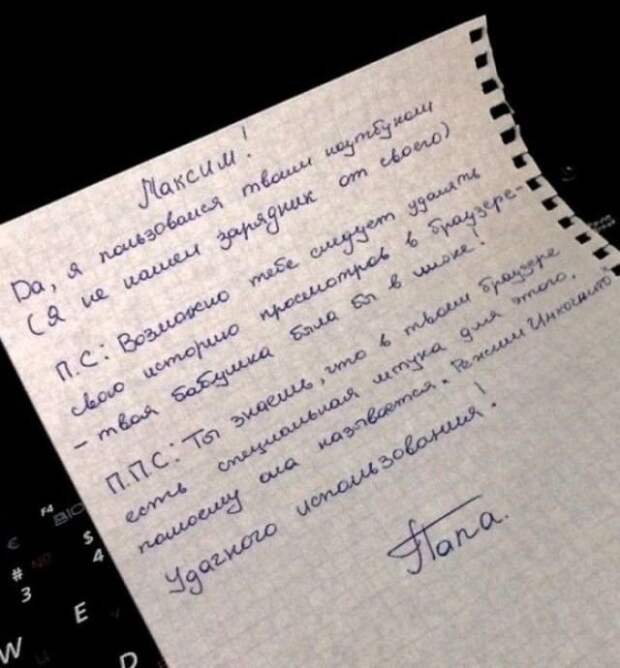 Максим!
Да, я пользовался твоим ноутбуком
(Я не нашел зарядник от своего)
П.С: Возможно тебе следует удалять
свою историю просмотров в браузере-
- твоя бабушка была бы в шоке!
П.П.С: Ты знаешь, что в твоем браузере
есть специальная штука для этого,
помоему она называется. Режим Инкогнито"
Удачного использования!
Папа.
F4
BIO
€
$
4
#
3
E
W
D